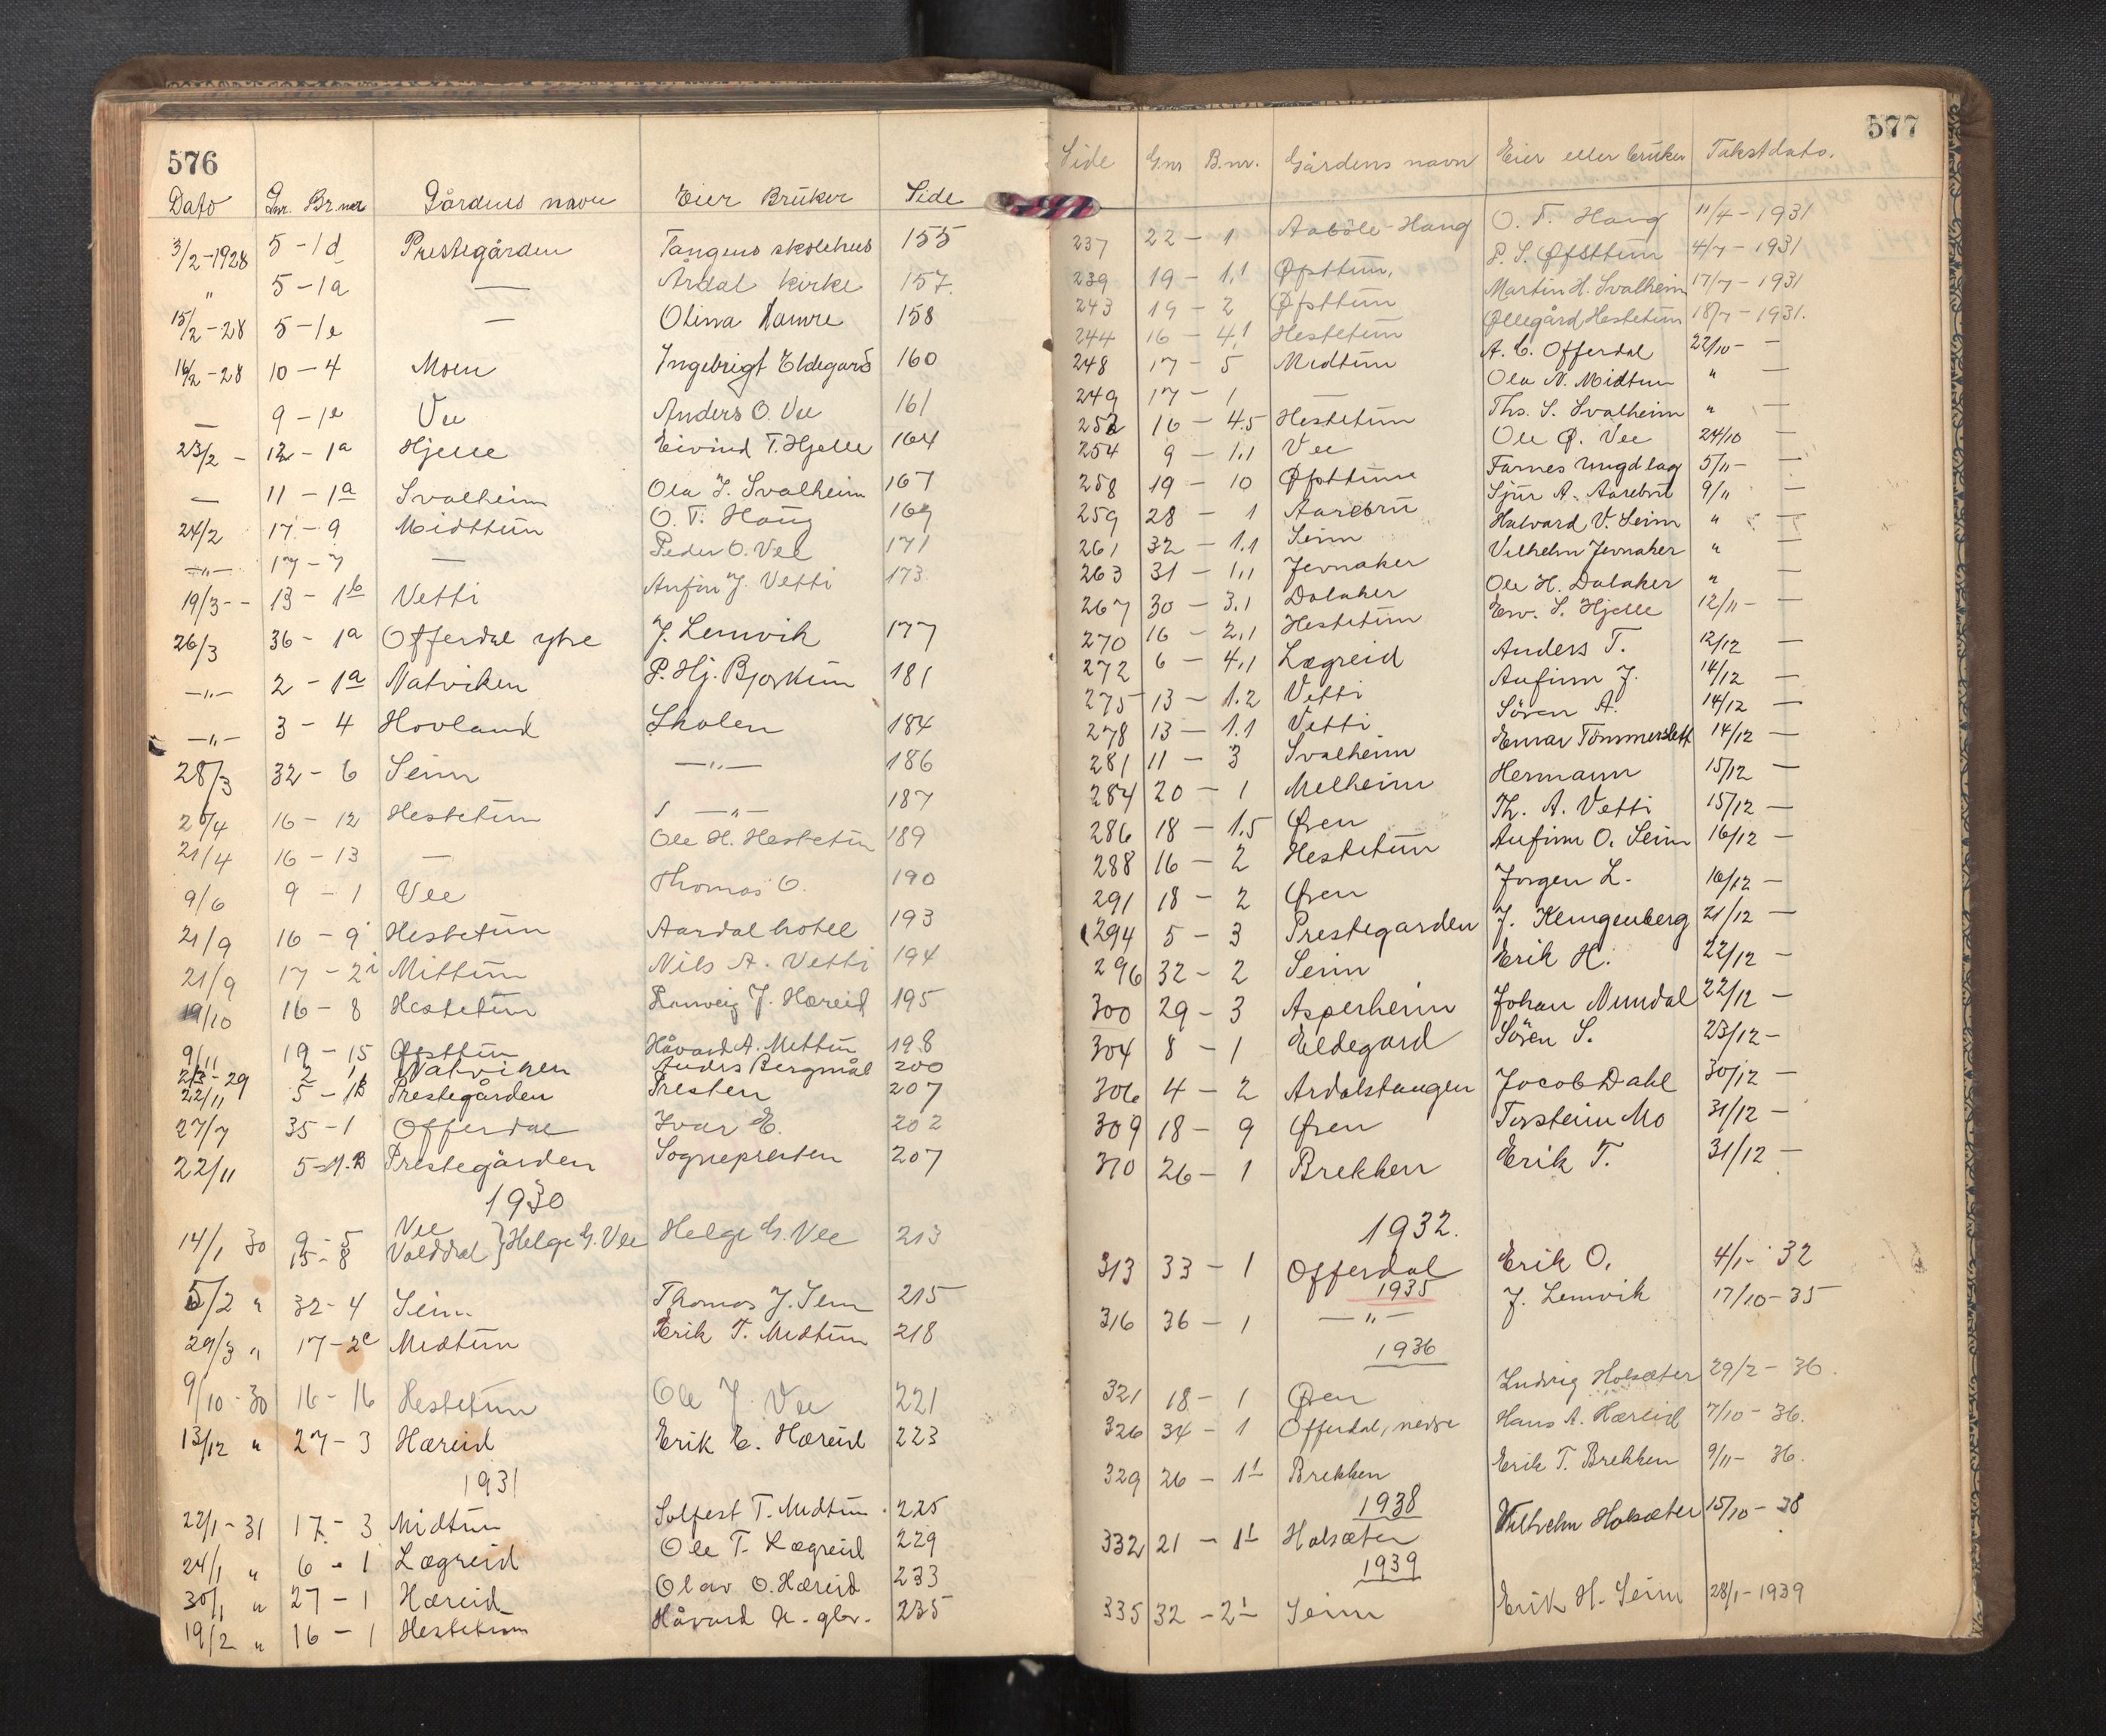 576
Dato Gnr. Br.nr Gårdens navn Eier Bruker Side
3/2-1928 5-1d Prestegården Tangens skolehus 155
" 5-1a — Årdal kirke 157.
15/2-28 5-1e — Olina 158
16/2-28 10-4 Moen Ingebrigt Eldegard 160
— 9-1e Vee Anders O. Vee 161
23/2 - 12-1a Hjelle Eivind T. Hjelle 164
— 11-1a Svalheim Ola J. Svalheim 167
24/2 17-9 Midttun O. T. Haug 169
—"— 17-7 — Peder O. Vee 171
19/3-- 13-1b Vetti Anfin J. Vetti 173
26/3 36-1a Offerdal ytre J. Lemvik 177
—"— 2-1a Natviken P. Hj. Bjørkum 181
—"— 3-4 Hovland Skolen 184
28/3 32-6 Seim —"— 186
2/4 16-12 Hestetun —"— 187
21/4 16-13 — Ole H. Hestetun 189
9/6 9-1 Vee Thomas O. 190
21/9 16-9 Hestetun Aardal hotel 193
21/9 17-2i Mittun Nils A. Vetti 194
19/10 16-8 Hestetun Ranveig J. Hæreid 195
9/11 19-15 Øfsttun Håvard A. Mittun 198
2/3-29 2 1 Natviken Anders Bergmål 200
22/11 5-1B Prestegården Presten 207
27/7 35-1 Offerdal Ivar E. 202
22/11 5-1.B Prestegården Sognepresten 207
1930
14/1 30 9-5 Vee } Helge G. Vee Helge G. Vee 213
15-8 Volddal
5/2 " 32-4 Seim Thomas J. Seim 215
29/3 " 17-2c Midtun Erik T. Midtun 218
9/10-30 16-16 Hestetun Ole J. Vee 221
13/12 " 27-3 Hæreid Erik E. Hæreid 223
1931
22/1-31 17-3 Midtun Solfest T. Midtun. 225
24/1 " 6-1 Lægreid Ole T. Lægreid 229
30/1 " 27-1 Hæreid Olav O. Hæreid 233
19/2 " 16-1 Hestetun Håvard A. gbr. 235
577
Side G.nr B.nr. Gårdens navn Eier eller bruker Takstdato.
237 22-1 Aabøle-Haug O. T. Haug 11/4-1931
239 19-1,1 Øfsttun, P. S. Øfsttun 4/7-1931
243 19-2 Øfsttun Martin H. Svalheim 17/7-1931
244 16-4,1 Hestetun Øllegård Hestetun 18/7-1931.
248 17-5 Midtun A. C. Offerdal 22/10- —
249 17-1 — Ola N. Midtun " —
252 16-4.5 Hestetun Ths. S. Svalheim " —
254 9-1.1 Vee Ole Ø. Vee 24/10 —
258 19-10 Øfsttun Farnes ungd lag 5/11- —
259 28-1 Aarebru Sjur A. Aarebru 9/11 —
261 32-1.1 Seim Halvard V. Seim " —
263 31-1,1 Jevnaker Vilhelm Jevnaker " —
267 30-3.1 Dalaker Ole H. Dalaker " —
270 16-2,1 Hestetun Eiv. S. Hjelle 12/11- —
272 6-4,1 Lægreid Anders T. 12/12 —
275 13-1.2 Vetti Anfinn J. 14/12 —
278 13-1.1 Vetti Søren A. 14/12 —
281 11-3 Svalheim Einar Tømmerslett 14/12 —
284 20-1 Melheim Hermann 15/12 —
286 18-1.5 Øren Th. A. Vetti 15/12 —
288 16-2 Hestetun Anfinn O. Seim 16/12 —
291 18-2 Øren Jørgen L. 16/12 —
294 5-3 Prestegarden J. Klingenberg 21/12 —
296 32-2 Seim Erik H. 22/12 —
300 29-3 Asperheim Johan Nundal 22/12 —
304 8-1 Eldegard Søren S. 23/12 —
306 4-2 Ardalstangen Jacob Dahl 30/12 —
309 18-9 Øren Torstein Mo 31/12 —
310 26-1 Brekken Erik T. 31/12 —
1932.
313 33-1 Offerdal Erik O. 4/1- 32
1935
316 36-1 —"— J. Lemvik 17/10-35
1936
321 18-1 Øren Ludvig Holsæter 29/2-36.
326 34-1 Offerdal, nedre Hans A. Hæreid 7/10-36.
329 26-11 Brekken Erik T. Brekken 9/11- 36.
1938
332 21-11 Holsæter Vilhelm Holsæter 15/10-38
1939
335 32-21 Seim Erik H. Seim 28/1-1939